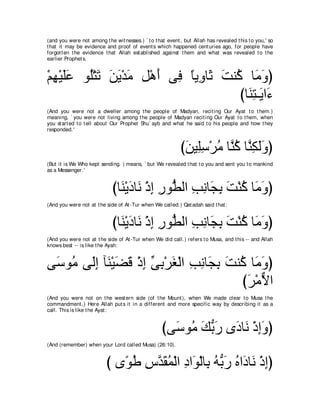 (and you were not among the witnesses.) `to that event, but Allah has revealed this to you,' so
that it may be evidence and proof of events which happened centuries ago, for people have
forgotten the evidence that Allah established against them and what was revealed to the
earlier Prophets.
﴿وَمَا كُنتَ ثَاوِياً فِى أَهْلِ مَدْيَنَ تَتْلُو عَلَيْهِمْ
ءَايَـتِنَا﴾
(And you were not a dweller among the people of Madyan, reciting Our Ayat to them.)
meaning, `you were not living among the people of Madyan reciting Our Ayat to them, when
you started to tell about Our Prophet Shu`ayb and what he said to his people and how they
responded.'
﴿وَلَكِنَّا كُنَّا مُرْسِلِينَ﴾
(But it is We Who kept sending.) means, `but We revealed that to you and sent you to mankind
as a Messenger.'
﴿وَمَا كُنْتَ بِجَانِبِ الطُّورِ إِذْ نَادَيْنَا﴾
(And you were not at the side of At-Tur when We called.) Qatadah said that:
﴿وَمَا كُنْتَ بِجَانِبِ الطُّورِ إِذْ نَادَيْنَا﴾
(And you were not at the side of At-Tur when We did call.) refers to Musa, and this -- and Allah
knows best -- is like the Ayah:
﴿وَمَا كُنتَ بِجَانِبِ الْغَرْبِىِّ إِذْ قَضَيْنَآ إِلَى مُوسَى
الاٌّمْرَ﴾
(And you were not on the western side (of the Mount), when We made clear to Musa the
commandment.) Here Allah puts it in a different and more specific way by describing it as a
call. This is like the Ayat:
﴿وَإِذْ نَادَى رَبُّكَ مُوسَى﴾
(And (remember) when your Lord called Musa) (26:10).
﴿إِذْ نَادَاهُ رَبُّهُ بِالْوَادِ الْمُقَدَّسِ طُوًى ﴾